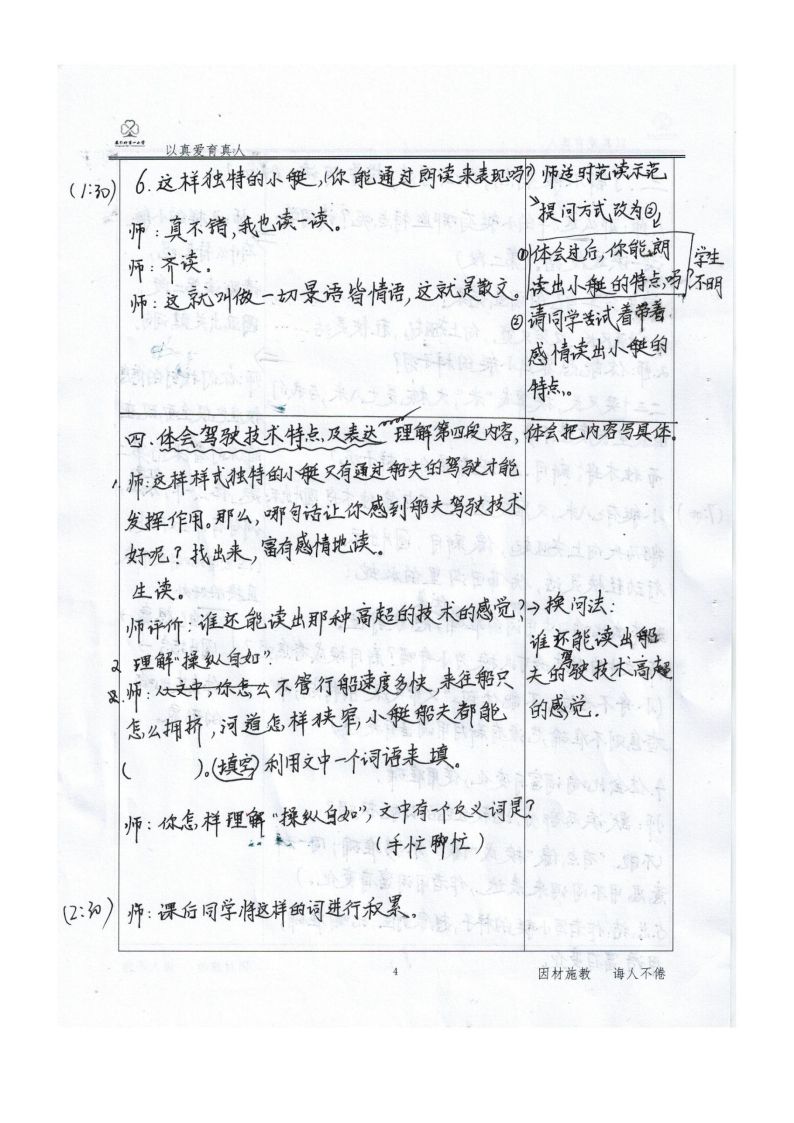 以真爱育真人
(1:30)
6.这样独特的小艇,你能通过朗读来表现吗?
师:真不错,我也读一读。
师:齐读。
师:这就叫做一切景语皆情语,这就是散文。
师适时范读示范
提问方式改为②
①体会过后,你能朗
读出小艇的特点吗?
学生
不明
②请同学尝试着带着
感情读出小艇的
特点。
四.体会驾驶技术特点及表达 理解第四段内容,体会把内容写具体。
1.师:这样样式独特的小艇又有通过船夫的驾驶才能
发挥作用。那么,哪句话让你感到船夫驾驶技术
好呢?找出来,富有感情地读。
生读。
师评价:谁还能读出那种高超的技术的感觉?
→换问法:
谁还能读出船
夫的驾驶技术高超
的感觉.
2 理解“操纵自如”.
2.师:不管行船速度多快,来往船只
怎么拥挤,河道怎样狭窄,小艇船夫都能
( )。(填空)利用文中一个词语来填。
师:你怎样理解“操纵自如”,文中有一个反义词是?
(手忙脚忙)
(2:30)
师:课后同学将这样的词进行积累。
4
因材施教 诲人不倦